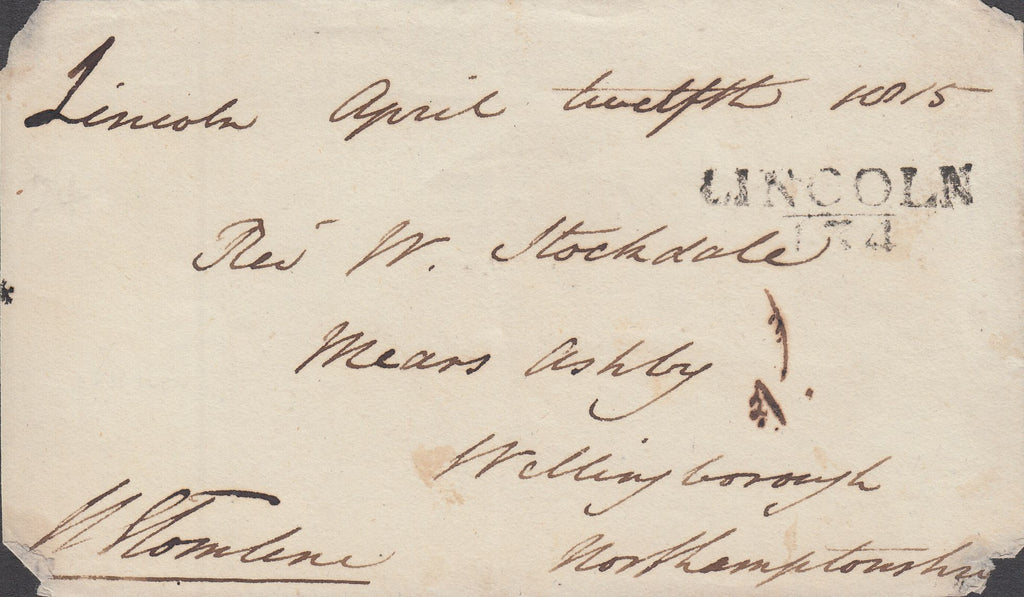 Lincoln April twelfth 1815
LINCOLN
134
Rev W. Stockdale
Mears Ashby
Wellingborough
Northamptonshire
W Tomline